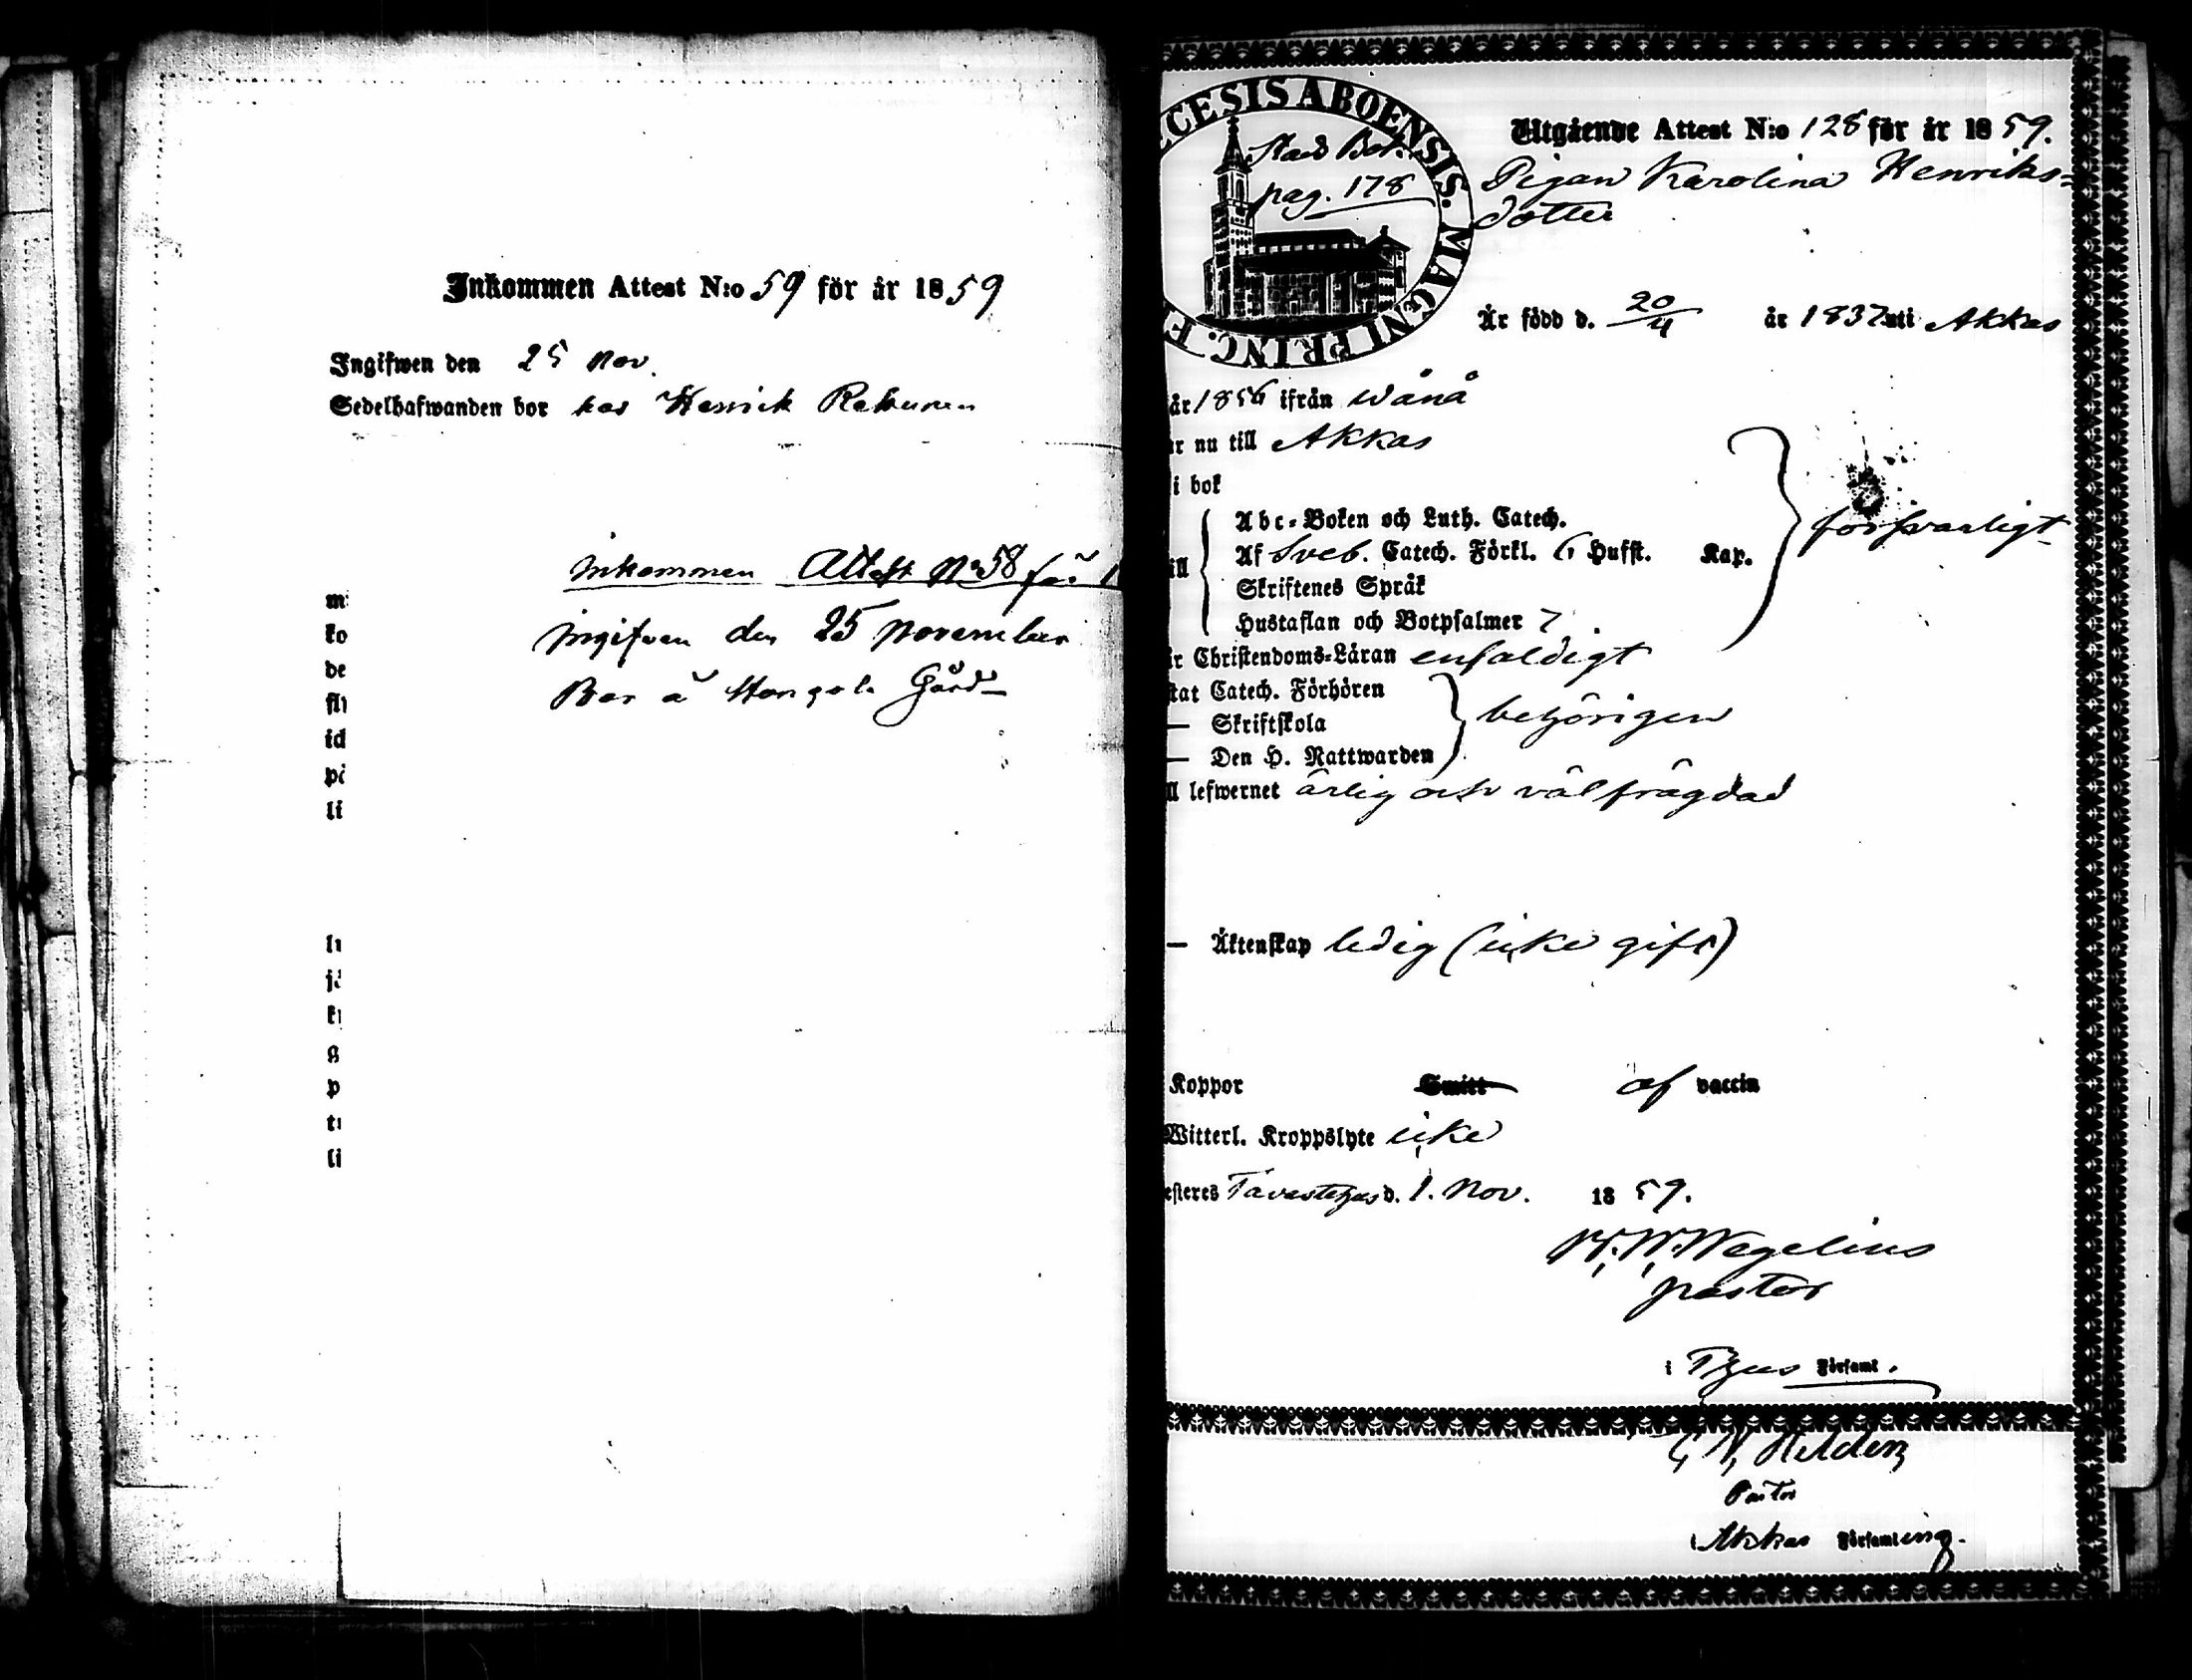 Inkommen Attest N:o 59 för år 1859
Ingifwen den 25 Nov.
Sedelhafwanden bor hos Henrik
inkommen Attest No 58 för 1
ingifven den 25 November
Bor å Gård
m
ko
de
fly
id
på
li
jä
g
p
li
ŒCESIS ABOENSIS. MAGNI PRINC. F
Stads Bok.
pag. 178
Utgående Attest N:o 128 för år 1859.
Pigan Karolina Henriks=
dotter
Är född d. 20/4 år 1837 uti Akkas
år 1856 ifrån Wånå
r nu till Akkas
i bok
ill
Abc=Boken och Luth. Catech.
Af Sveb. Catech. Förkl. 6 Hufst. Kap.
Skriftenes Språk
Hustaflan och Botpsalmer 7
försvarligt
r Christendoms=Läran enfaldigt
stat Catech. Förhören
— Skriftskola
— Den H. Nattwarden
behörigen
ll lefwernet ärlig och välfrägdad
— Äktenskap ledig (icke gift)
Koppor Smitt af vaccin
Witterl. Kroppslyte icke
esteres Tavastehus d. 1. Nov. 1859.
W. Wegelius
pastor
i T:hus Församl.
Pastor
i Akkas Församling.